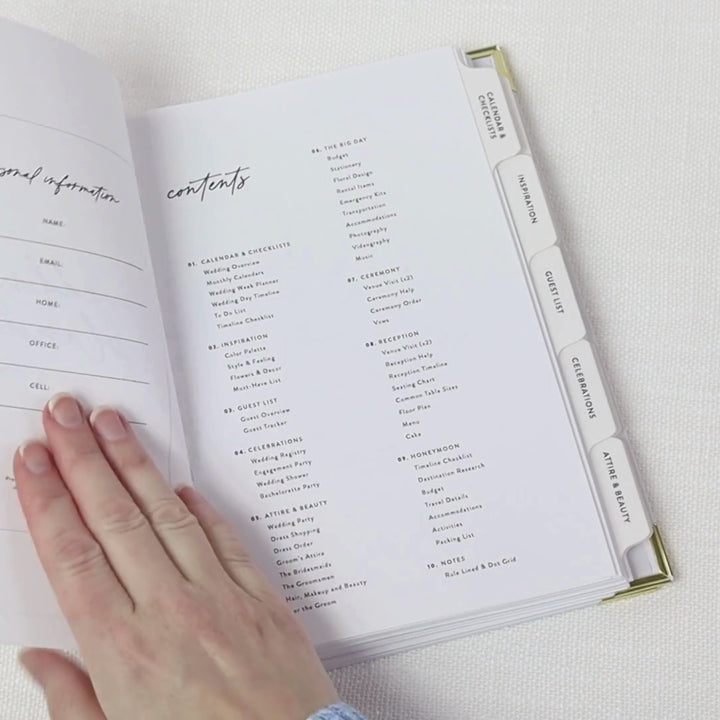 sonal information
NAME:
EMAIL:
HOME:
OFFICE:
CELL:
contents
01. CALENDAR & CHECKLISTS
Wedding Overview
Monthly Calendars
Wedding Week Planner
Wedding Day Timeline
To Do List
Timeline Checklist
02. INSPIRATION
Color Palette
Style & Feeling
Flowers & Decor
Must-Have List
03. GUEST LIST
Guest Overview
Guest Tracker
04. CELEBRATIONS
Wedding Registry
Engagement Party
Wedding Shower
Bachelorette Party
05. ATTIRE & BEAUTY
Wedding Party
Dress Shopping
Dress Order
Groom's Attire
The Bridesmaids
The Groomsmen
Hair, Makeup and Beauty
or the Groom
06. THE BIG DAY
Budget
Stationery
Floral Design
Rental Items
Emergency Kits
Transportation
Accommodations
Photography
Videography
Music
07. CEREMONY
Venue Visit (x2)
Ceremony Help
Ceremony Order
Vows
08. RECEPTION
Venue Visit (x2)
Reception Help
Reception Timeline
Seating Chart
Common Table Sizes
Floor Plan
Menu
Cake
09. HONEYMOON
Timeline Checklist
Destination Research
Budget
Travel Details
Accommodations
Activities
Packing List
10. NOTES
Rule Lined & Dot Grid
CALENDAR &
CHECKLISTS
INSPIRATION
GUEST LIST
CELEBRATIONS
ATTIRE & BEAUTY